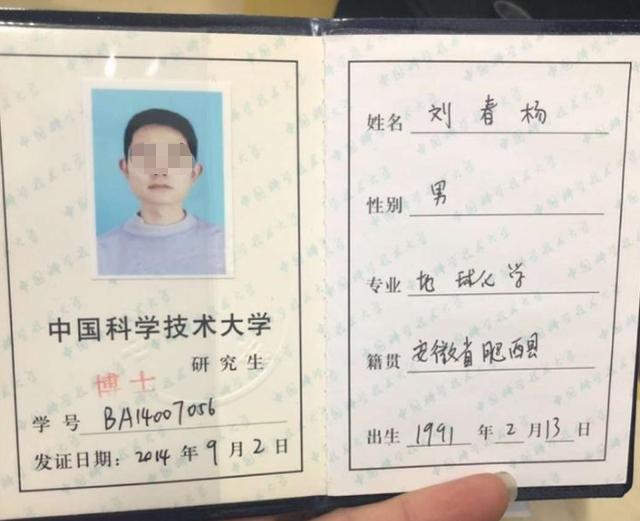 中国科学技术大学
研究生
博士
学号 BA14007056
发证日期：2014年9月2日
姓名 刘春杨
性别 男
专业 地球化学
籍贯 安徽省肥西县
出生 1991年2月13日